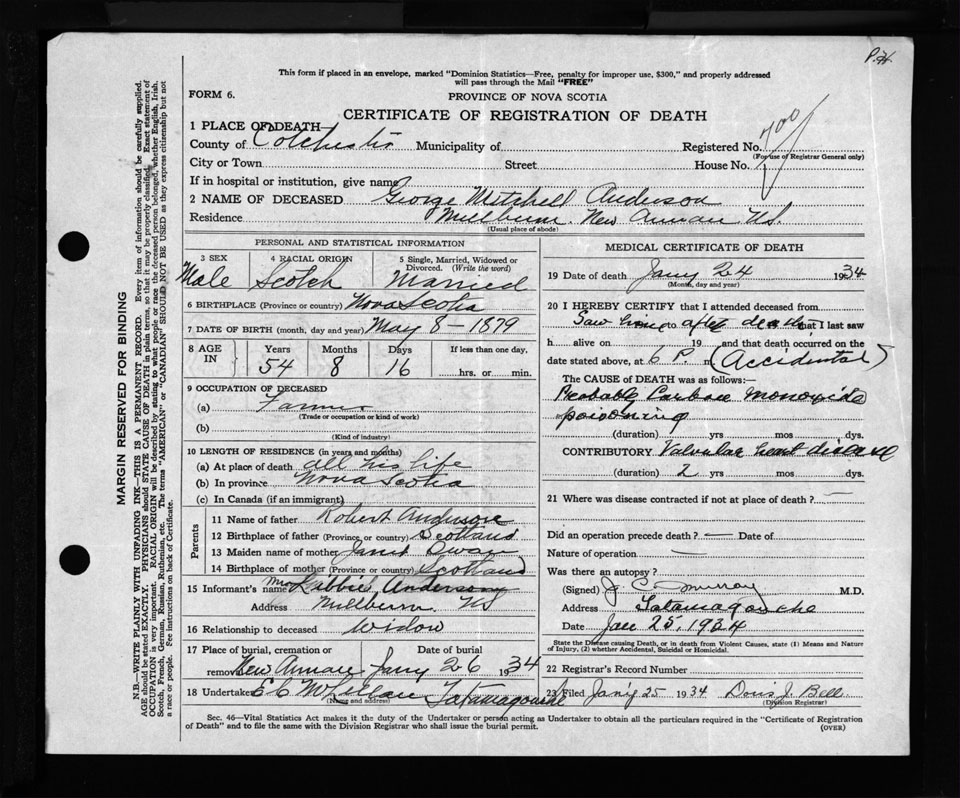 P.H.
This form if placed in an envelope, marked "Dominion Statistics—Free, penalty for improper use, $300," and properly addressed
will pass through the Mail "FREE"
FORM 6.
PROVINCE OF NOVA SCOTIA
CERTIFICATE OF REGISTRATION OF DEATH
1 PLACE OF DEATH
County of Colchester Municipality of Registered No. 700
(For use of Registrar General only)
City or Town Street House No.
If in hospital or institution, give name
2 NAME OF DECEASED George Mitchell Anderson
Residence Millburn New Annan N.S.
(Usual place of abode)
PERSONAL AND STATISTICAL INFORMATION
3 SEX 4 RACIAL ORIGIN 5 Single, Married, Widowed or
Divorced. (Write the word)
Male Scotch Married
6 BIRTHPLACE (Province or country) Nova Scotia
7 DATE OF BIRTH (month, day and year) May 8 - 1879
8 AGE IN Years Months Days If less than one day,
54 8 16 hrs. or min.
9 OCCUPATION OF DECEASED
(a) Farmer
(Trade or occupation or kind of work)
(b)
(Kind of industry)
10 LENGTH OF RESIDENCE (in years and months)
(a) At place of death all his life
(b) In province Nova Scotia
(c) In Canada (if an immigrant)
Parents
11 Name of father Robert Anderson
12 Birthplace of father (Province or country) Scotland
13 Maiden name of mother Janet Swan
14 Birthplace of mother (Province or country) Scotland
15 Informant's name Mrs Anderson
Address Millburn NS
16 Relationship to deceased Widow
17 Place of burial, cremation or Date of burial
removal New Annan Jany 26 1934
18 Undertaker E C McLellan Tatamagouche
(Name and address)
MEDICAL CERTIFICATE OF DEATH
19 Date of death Jany 24 1934
(Month, day and year)
20 I HEREBY CERTIFY that I attended deceased from
Saw him after death that I last saw
h alive on 19 and that death occurred on the
date stated above, at 6 P. m (Accidental)
The CAUSE OF DEATH was as follows:—
Probable Carbon monoxide
poisoning
(duration) yrs mos dys.
CONTRIBUTORY Valvular heart disease
(duration) 2 yrs mos dys.
21 Where was disease contracted if not at place of death? —
Did an operation precede death? — Date of
Nature of operation —
Was there an autopsy?
(Signed) J. C. Murray M.D.
Address Tatamagouche
Date Jan 25 1934
State the Disease causing Death, or in death from Violent Causes, state (1) Means and Nature
of Injury, (2) whether Accidental, Suicidal or Homicidal.
22 Registrar's Record Number
23 Filed Jany 25 1934 Donis J. Bell
(Division Registrar)
Sec. 46—Vital Statistics Act makes it the duty of the Undertaker or person acting as Undertaker to obtain all the particulars required in the "Certificate of Registration
of Death" and to file the same with the Division Registrar who shall issue the burial permit.
(OVER)
MARGIN RESERVED FOR BINDING
N.B.—WRITE PLAINLY WITH UNFADING INK—THIS IS A PERMANENT RECORD. Every item of information should be carefully supplied.
AGE should be stated EXACTLY. PHYSICIANS should STATE CAUSE OF DEATH in plain terms, so that it may be properly classified. Exact statement of
OCCUPATION is very important. RACIAL ORIGIN will be described by stating to what people or race the deceased person belonged, whether English, Irish,
Scotch, French, German, Russian, Ruthenian, etc. The terms "AMERICAN" or "CANADIAN" SHOULD NOT BE USED as they express citizenship but not
a race or people. Fee instructions on back of Certificate.